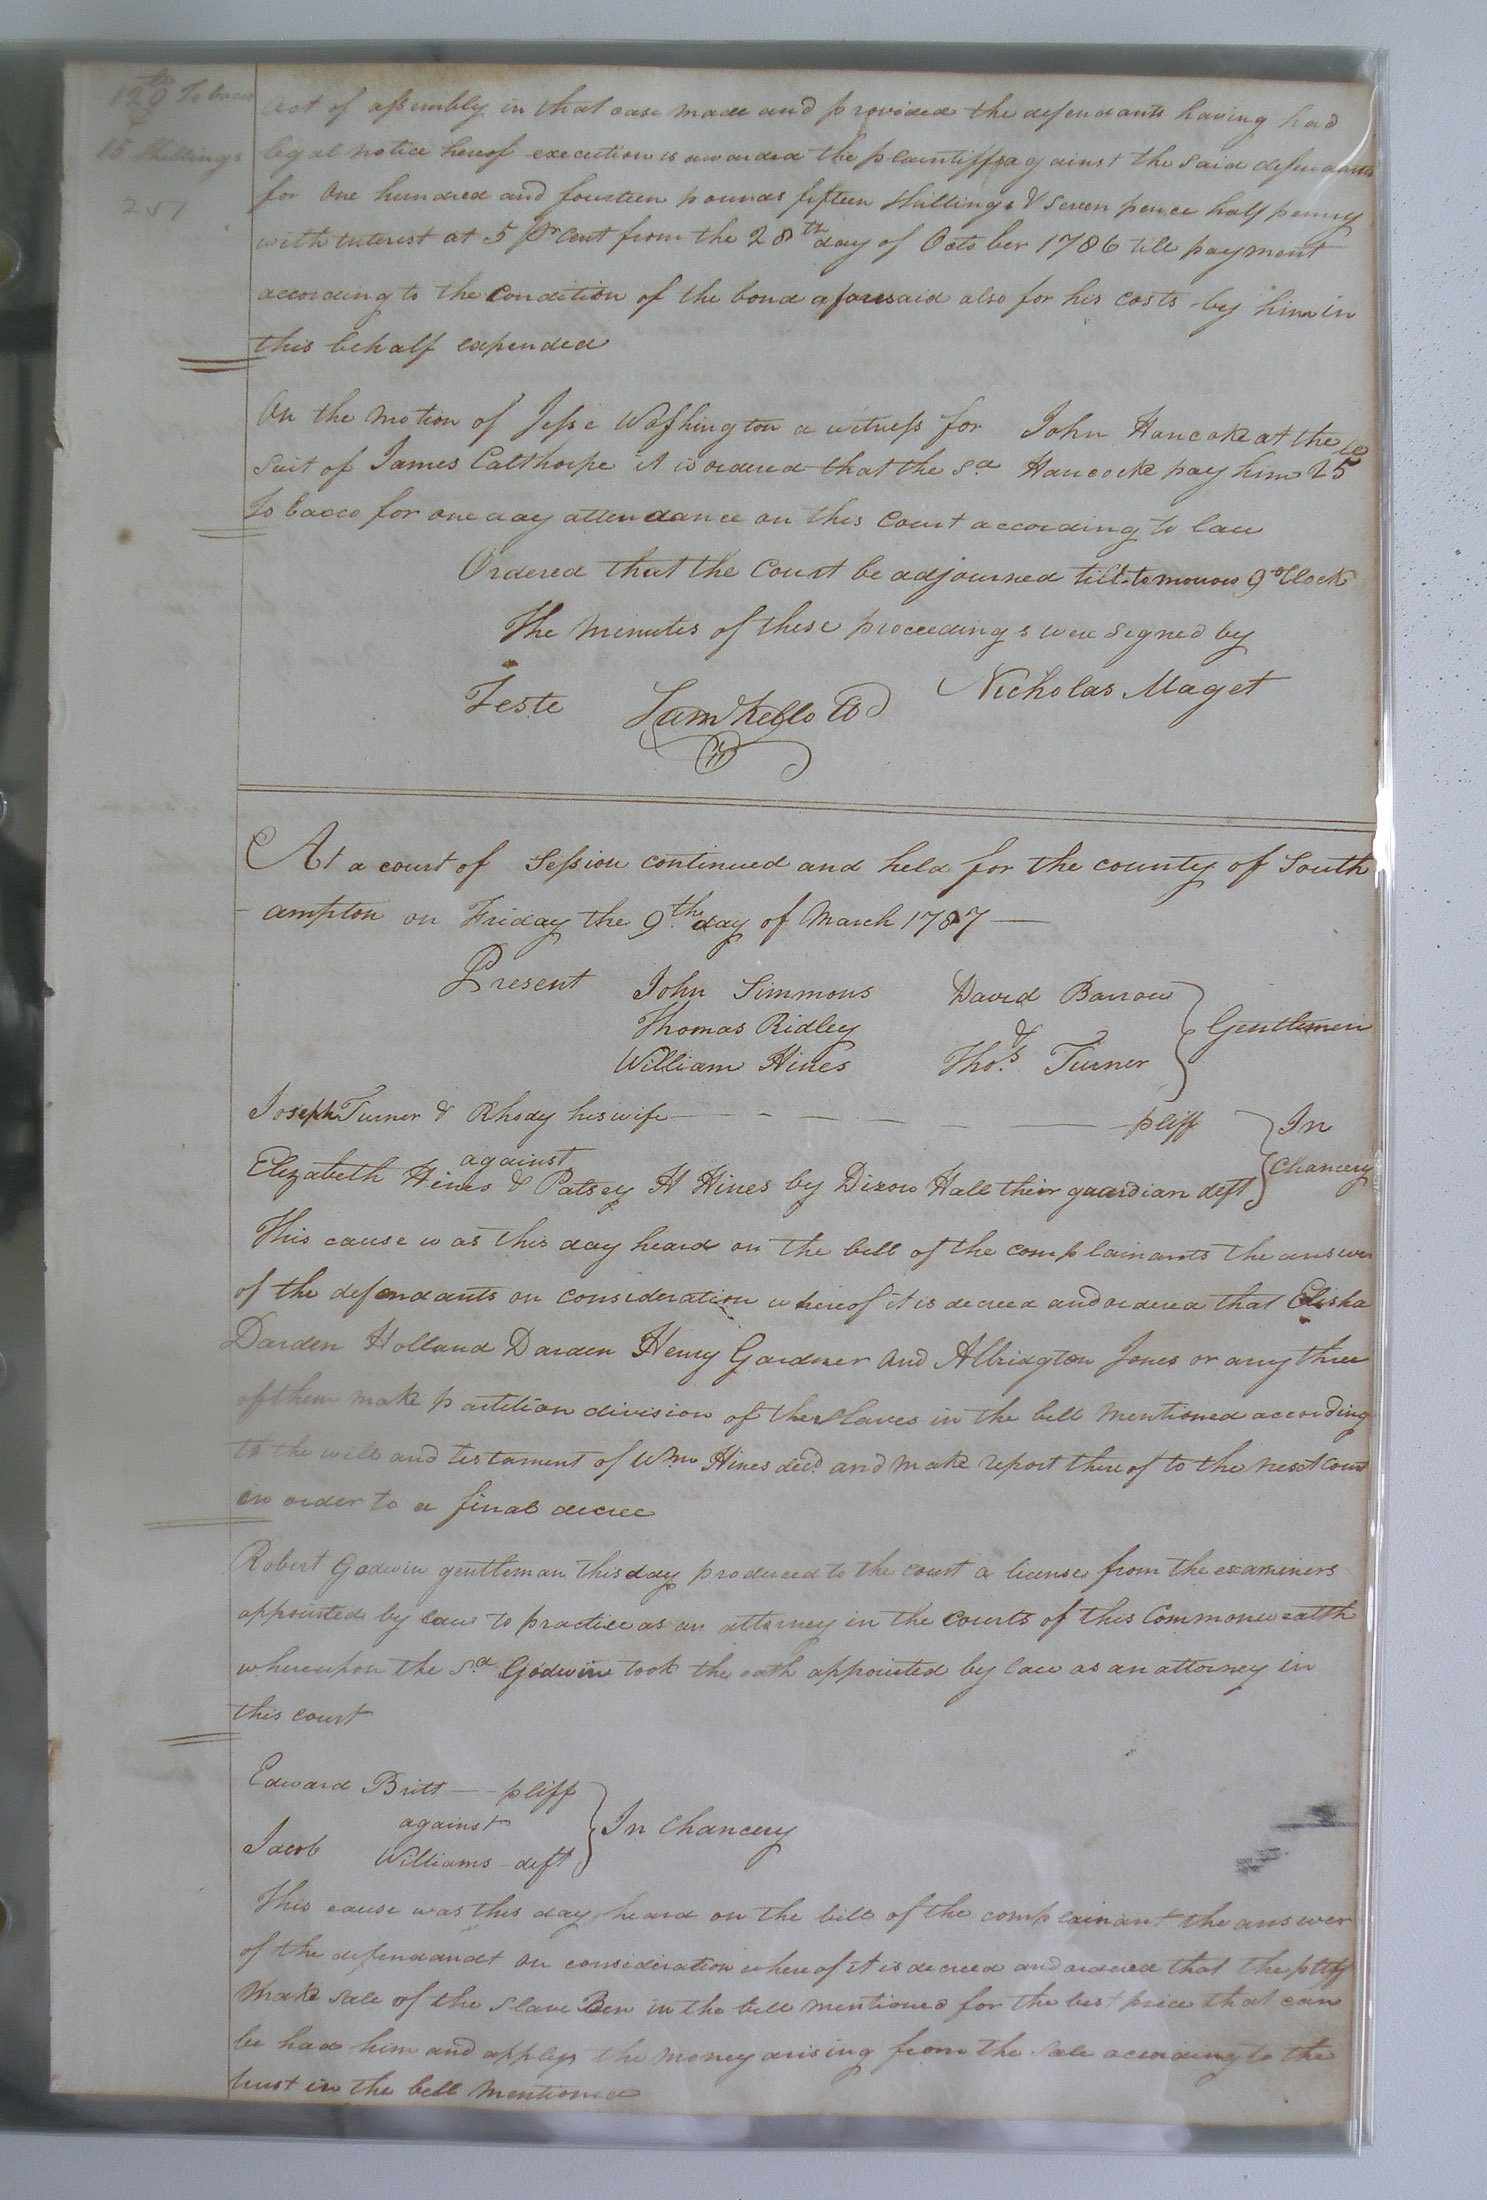 129 lb Tobacco
&
15 Shillings
251
Act of assembly in that case made and provided the defendants having had
legal notice hereof execution is awarded the plaintiffs against the said defendants
for One hundred and fourteen pounds fifteen Shillings & Seven pence half penny
with interest at 5 Pr Cent from the 28th day of October 1786 till payment
according to the Condition of the bond aforesaid also for his costs by him in
this behalf expended
On the motion of Jesse Washington a witness for John Hancoke at the
Suit of James Calthorpe it is ordered that the sd Hancocke pay him 25 lb
Tobacco for one day attendance on this Court according to law
Ordered that the Court be adjourned till tomorrow 9 oClock
The Minutes of these proceedings were Signed by
Nicholas Maget
Teste Saml Kello CD
At a court of Session continued and held for the county of South
ampton on Friday the 9th day of March 1787 —
Present John Simmons David Barrow
Thomas Ridley & Gentlemen
William Hines Thos. Turner
Joseph Turner & Rhody his wife — — — — — pliff In
against Chancery
Elizabeth Hines & Patsey H Hines by Dixon Hall their guardian deft
This cause was this day heard on the bill of the complainants the answer
of the defendants on consideration whereof it is decreed and ordered that Elisha
Darden Holland Darden Henry Gardner and Albridgton Jones or any three
of them make partition division of the Slaves in the bill mentioned according
to the will and testament of Wm Hines decd. and make report thereof to the next Court
in order to a final decree
Robert Godwin gentleman this day produced to the court a license from the examiners
appointed by law to practice as an attorney in the courts of this Commonwealth
whereupon the sd Godwin took the oath appointed by law as an attorney in
this court
Edward Britt — pliff
against In Chancery
Jacob Williams - deft
This cause was this day heard on the bill of the complainant the answer
of the defendandt on consideration whereof it is decreed and ordered that the pltff
make sale of the slave Ben in the bill mentioned for the best price that can
be had him and apply the money arising from the Sale according to the
trust in the bill mentioned